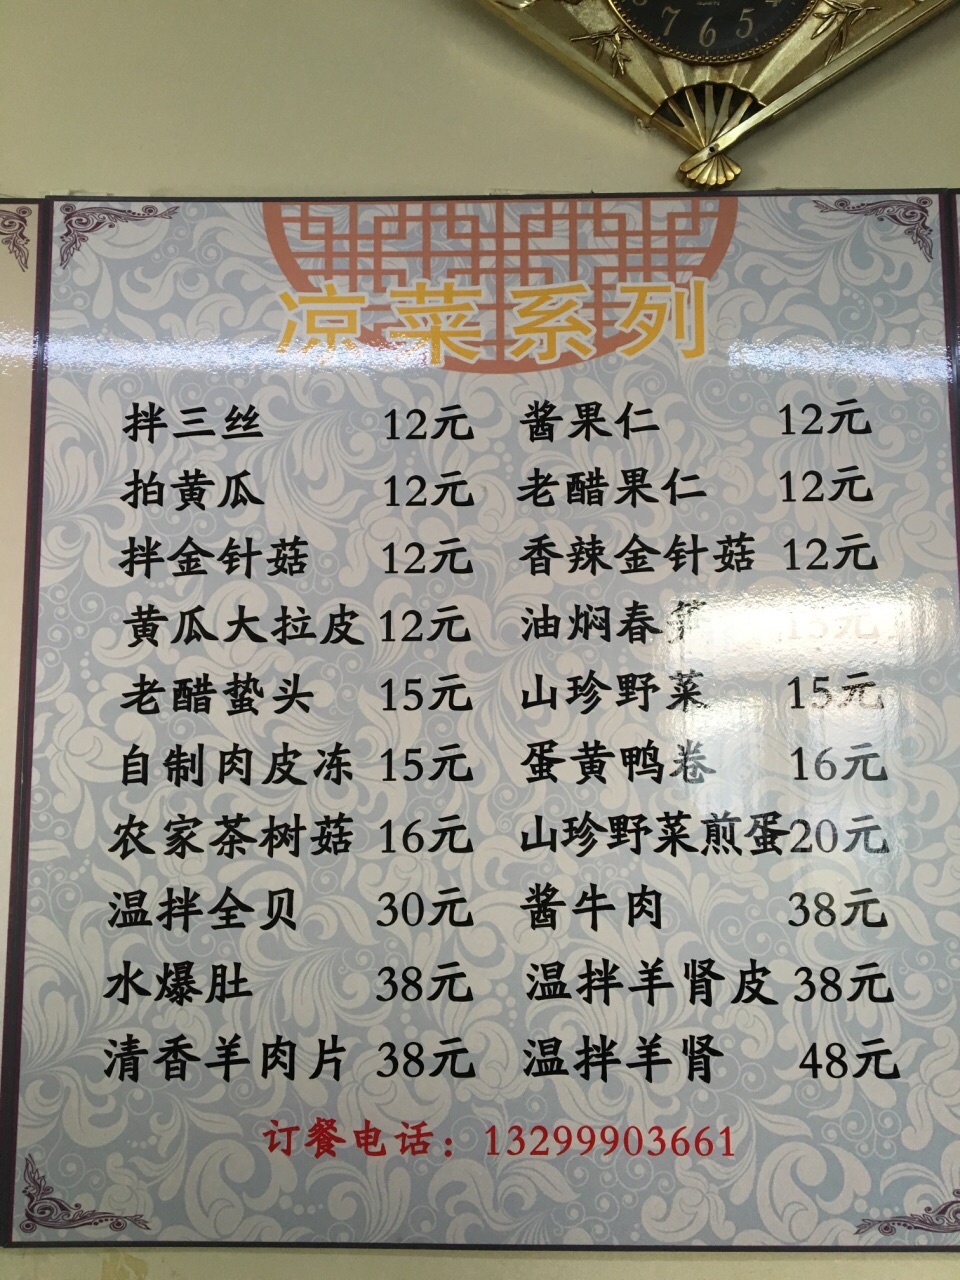 7 6 5
凉菜系列
拌三丝 12元 酱果仁 12元
拍黄瓜 12元 老醋果仁 12元
拌金针菇 12元 香辣金针菇 12元
黄瓜大拉皮 12元 油焖春笋 15元
老醋蛰头 15元 山珍野菜 15元
自制肉皮冻 15元 蛋黄鸭卷 16元
农家茶树菇 16元 山珍野菜煎蛋 20元
温拌全贝 30元 酱牛肉 38元
水爆肚 38元 温拌羊肾皮 38元
清香羊肉片 38元 温拌羊肾 48元
订餐电话：13299903661